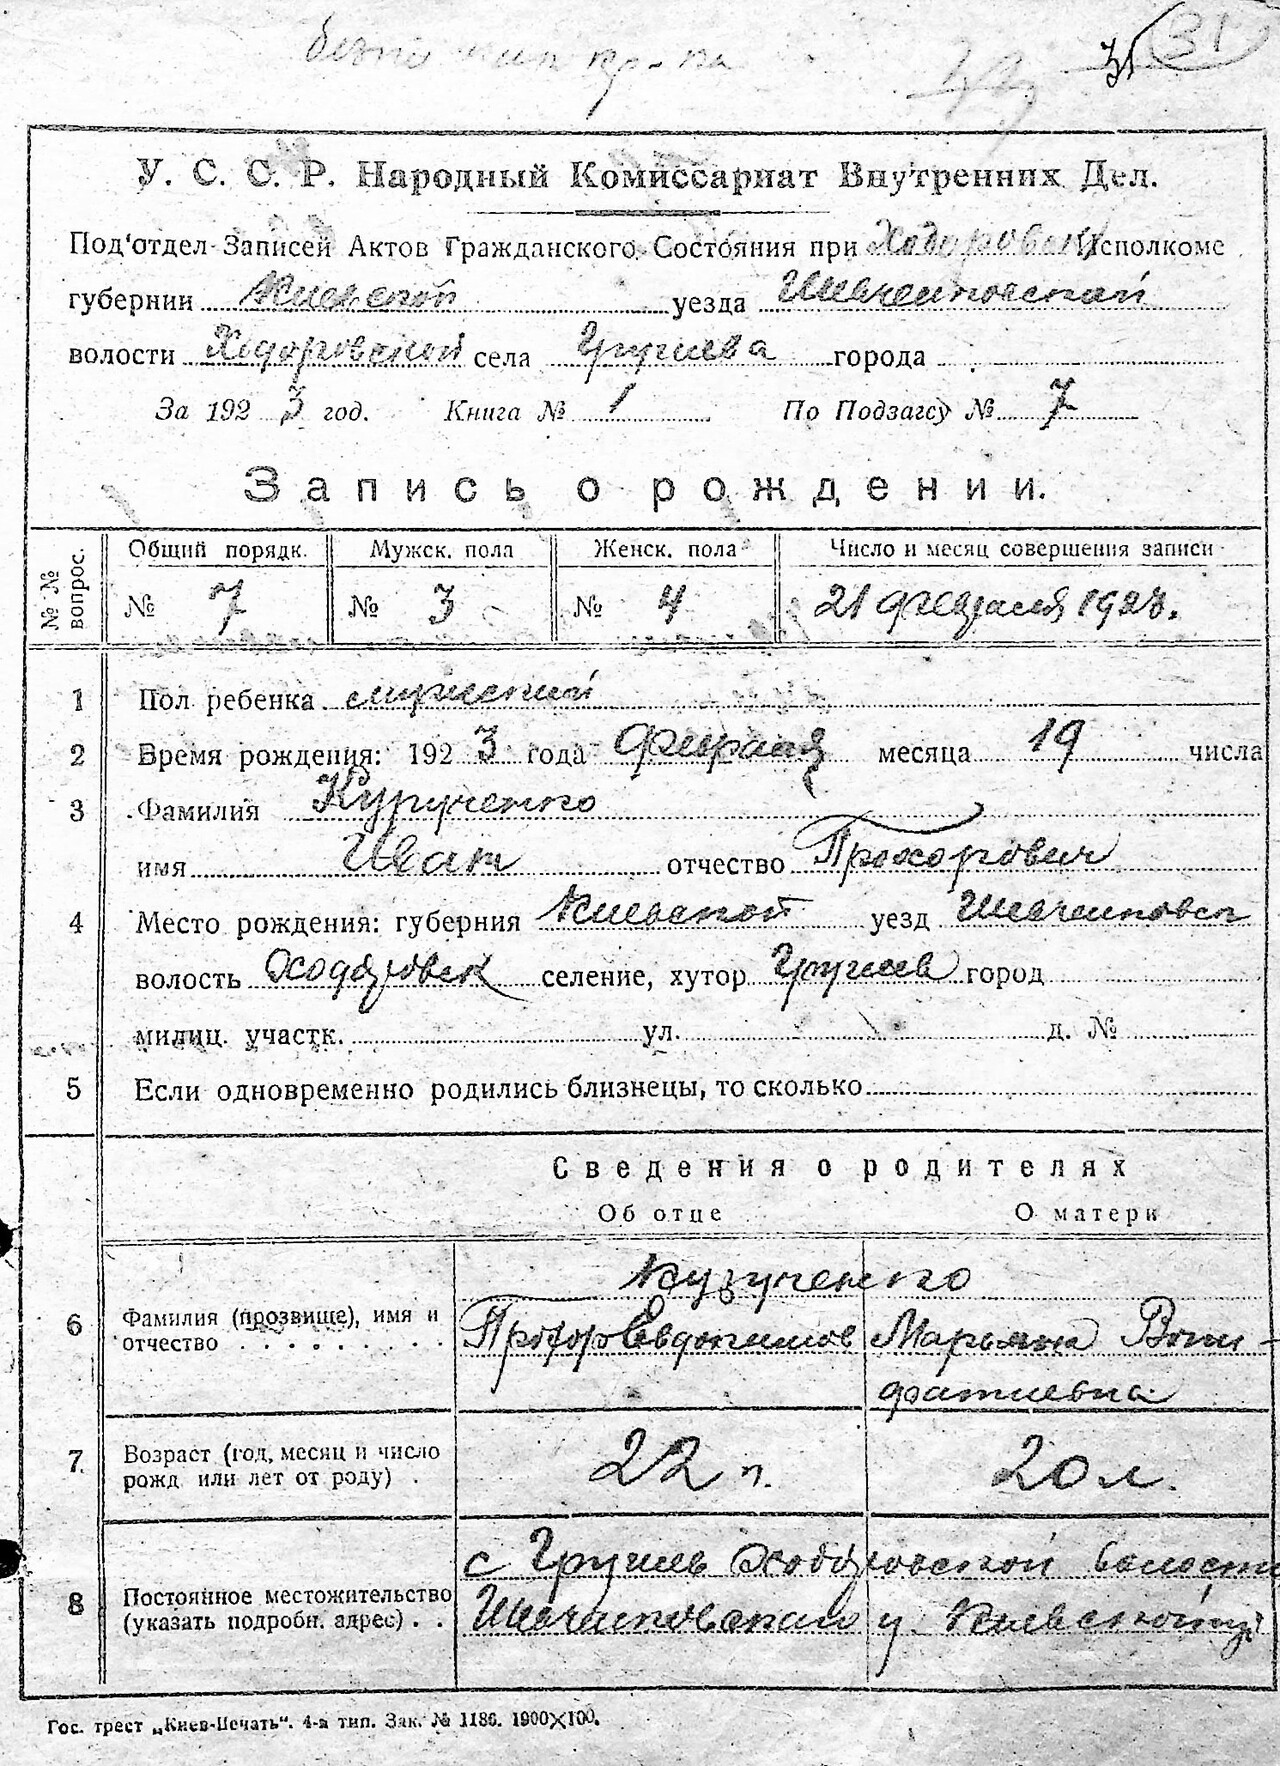 31
У. С. С. Р. Народный Комиссариат Внутренних Дел.
Под'отдел Записей Актов Гражданского Состояния при Ходоровском Исполкоме
губернии Киевской уезда Шевченковской
волости Ходоровской села Грушева города
За 1923 год. Книга № 1 По Подзагсу № 7
Запись о рождении.
№ № вопрос. Общий порядк. Мужск. пола Женск. пола Число и месяц совершения записи
№ 7 № 3 № 4 21 февраля 1923.
1 Пол ребенка мужеский
2 Время рождения: 1923 года Февраля месяца 19 числа
3 Фамилия
имя Иван отчество Прохорович
4 Место рождения: губерния Киевской уезд Шевченковск
волость Ходоровск селение, хутор Грушев город
милиц. участк. ул. д. №
5 Если одновременно родились близнецы, то сколько
Сведения о родителях
Об отце О матери
6 Фамилия (прозвище), имя и отчество Прохор Евдокимов Марьяна Вони-
фатиевна
7 Возраст (год, месяц и число рожд или лет от роду) 22 г. 20 л.
8 Постоянное местожительство (указать подробн. адрес) с Грушев Ходоровской волости
Шевченковской у. Киевской г
Гос. трест „Киев-Печать“. 4-я тип. Зак. № 1186. 1900×100.